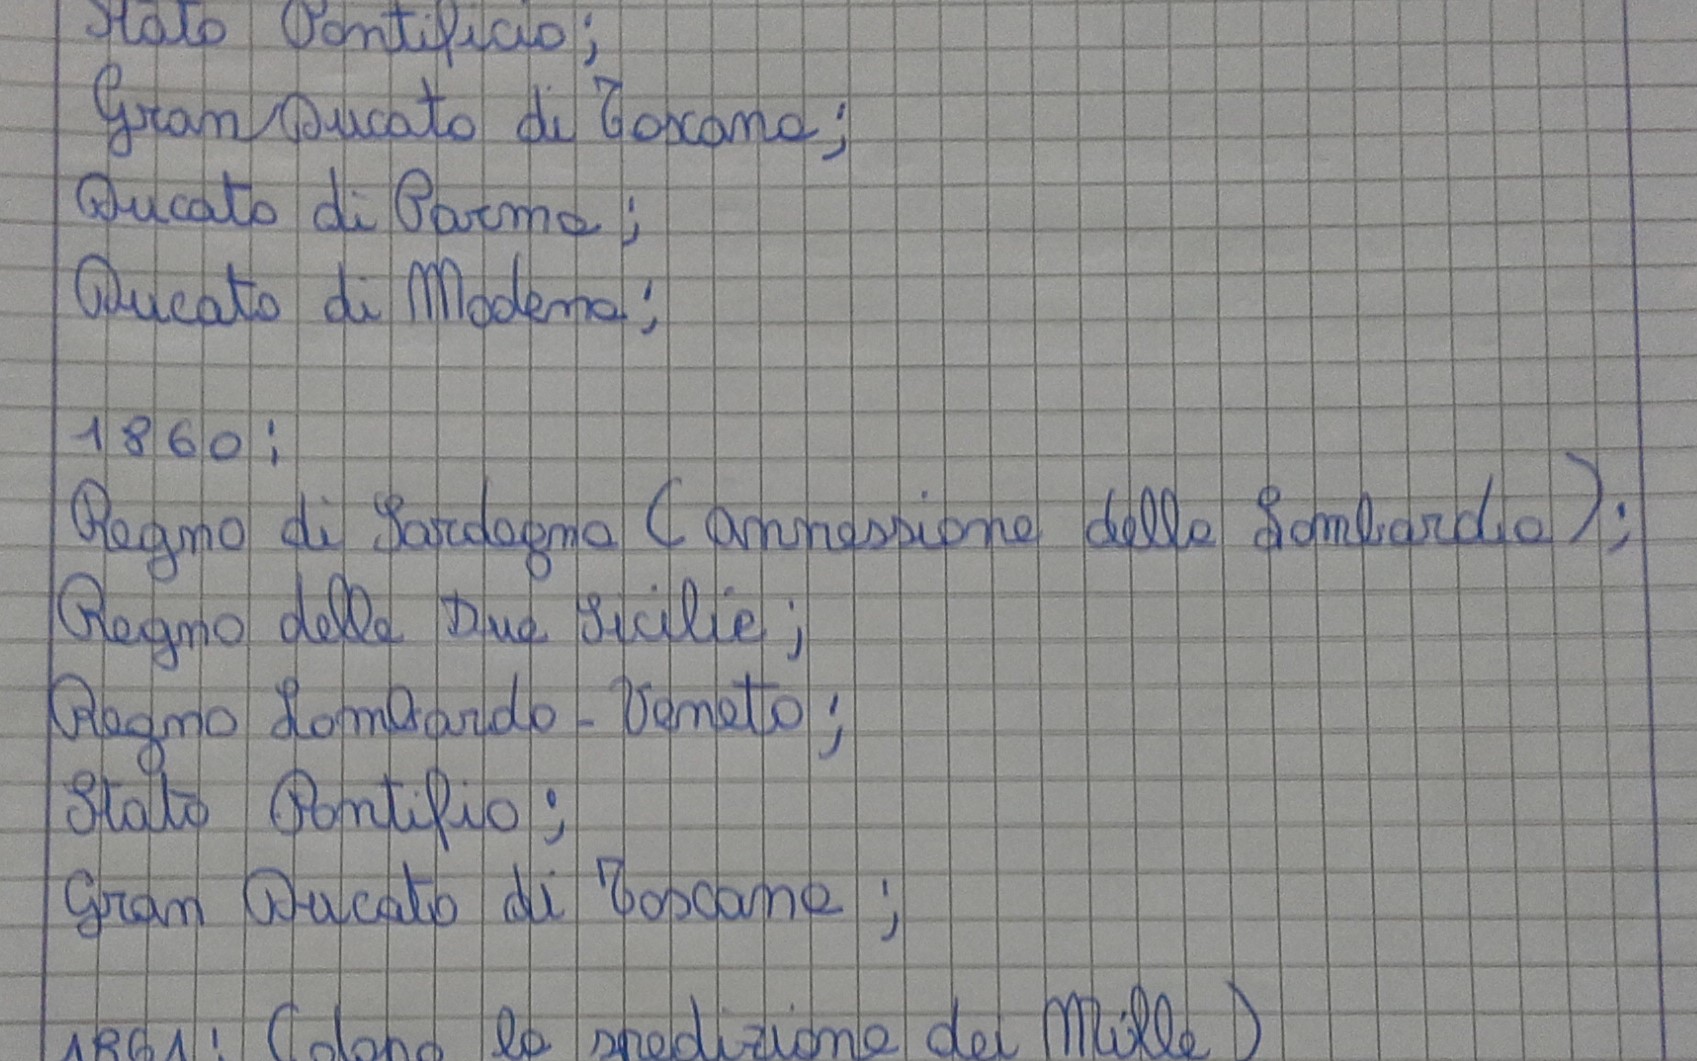 Stato Pontificio;
Gran Ducato di Toscana;
Ducato di Parma;
Ducato di Modena;
1860:
Regno di Sardegna (annessione della Lombardia);
Regno delle Due Sicilie;
Regno Lombardo-Veneto;
Stato Pontifio;
Gran Ducato di Toscana;
1861: (dopo la spedizione dei Mille)